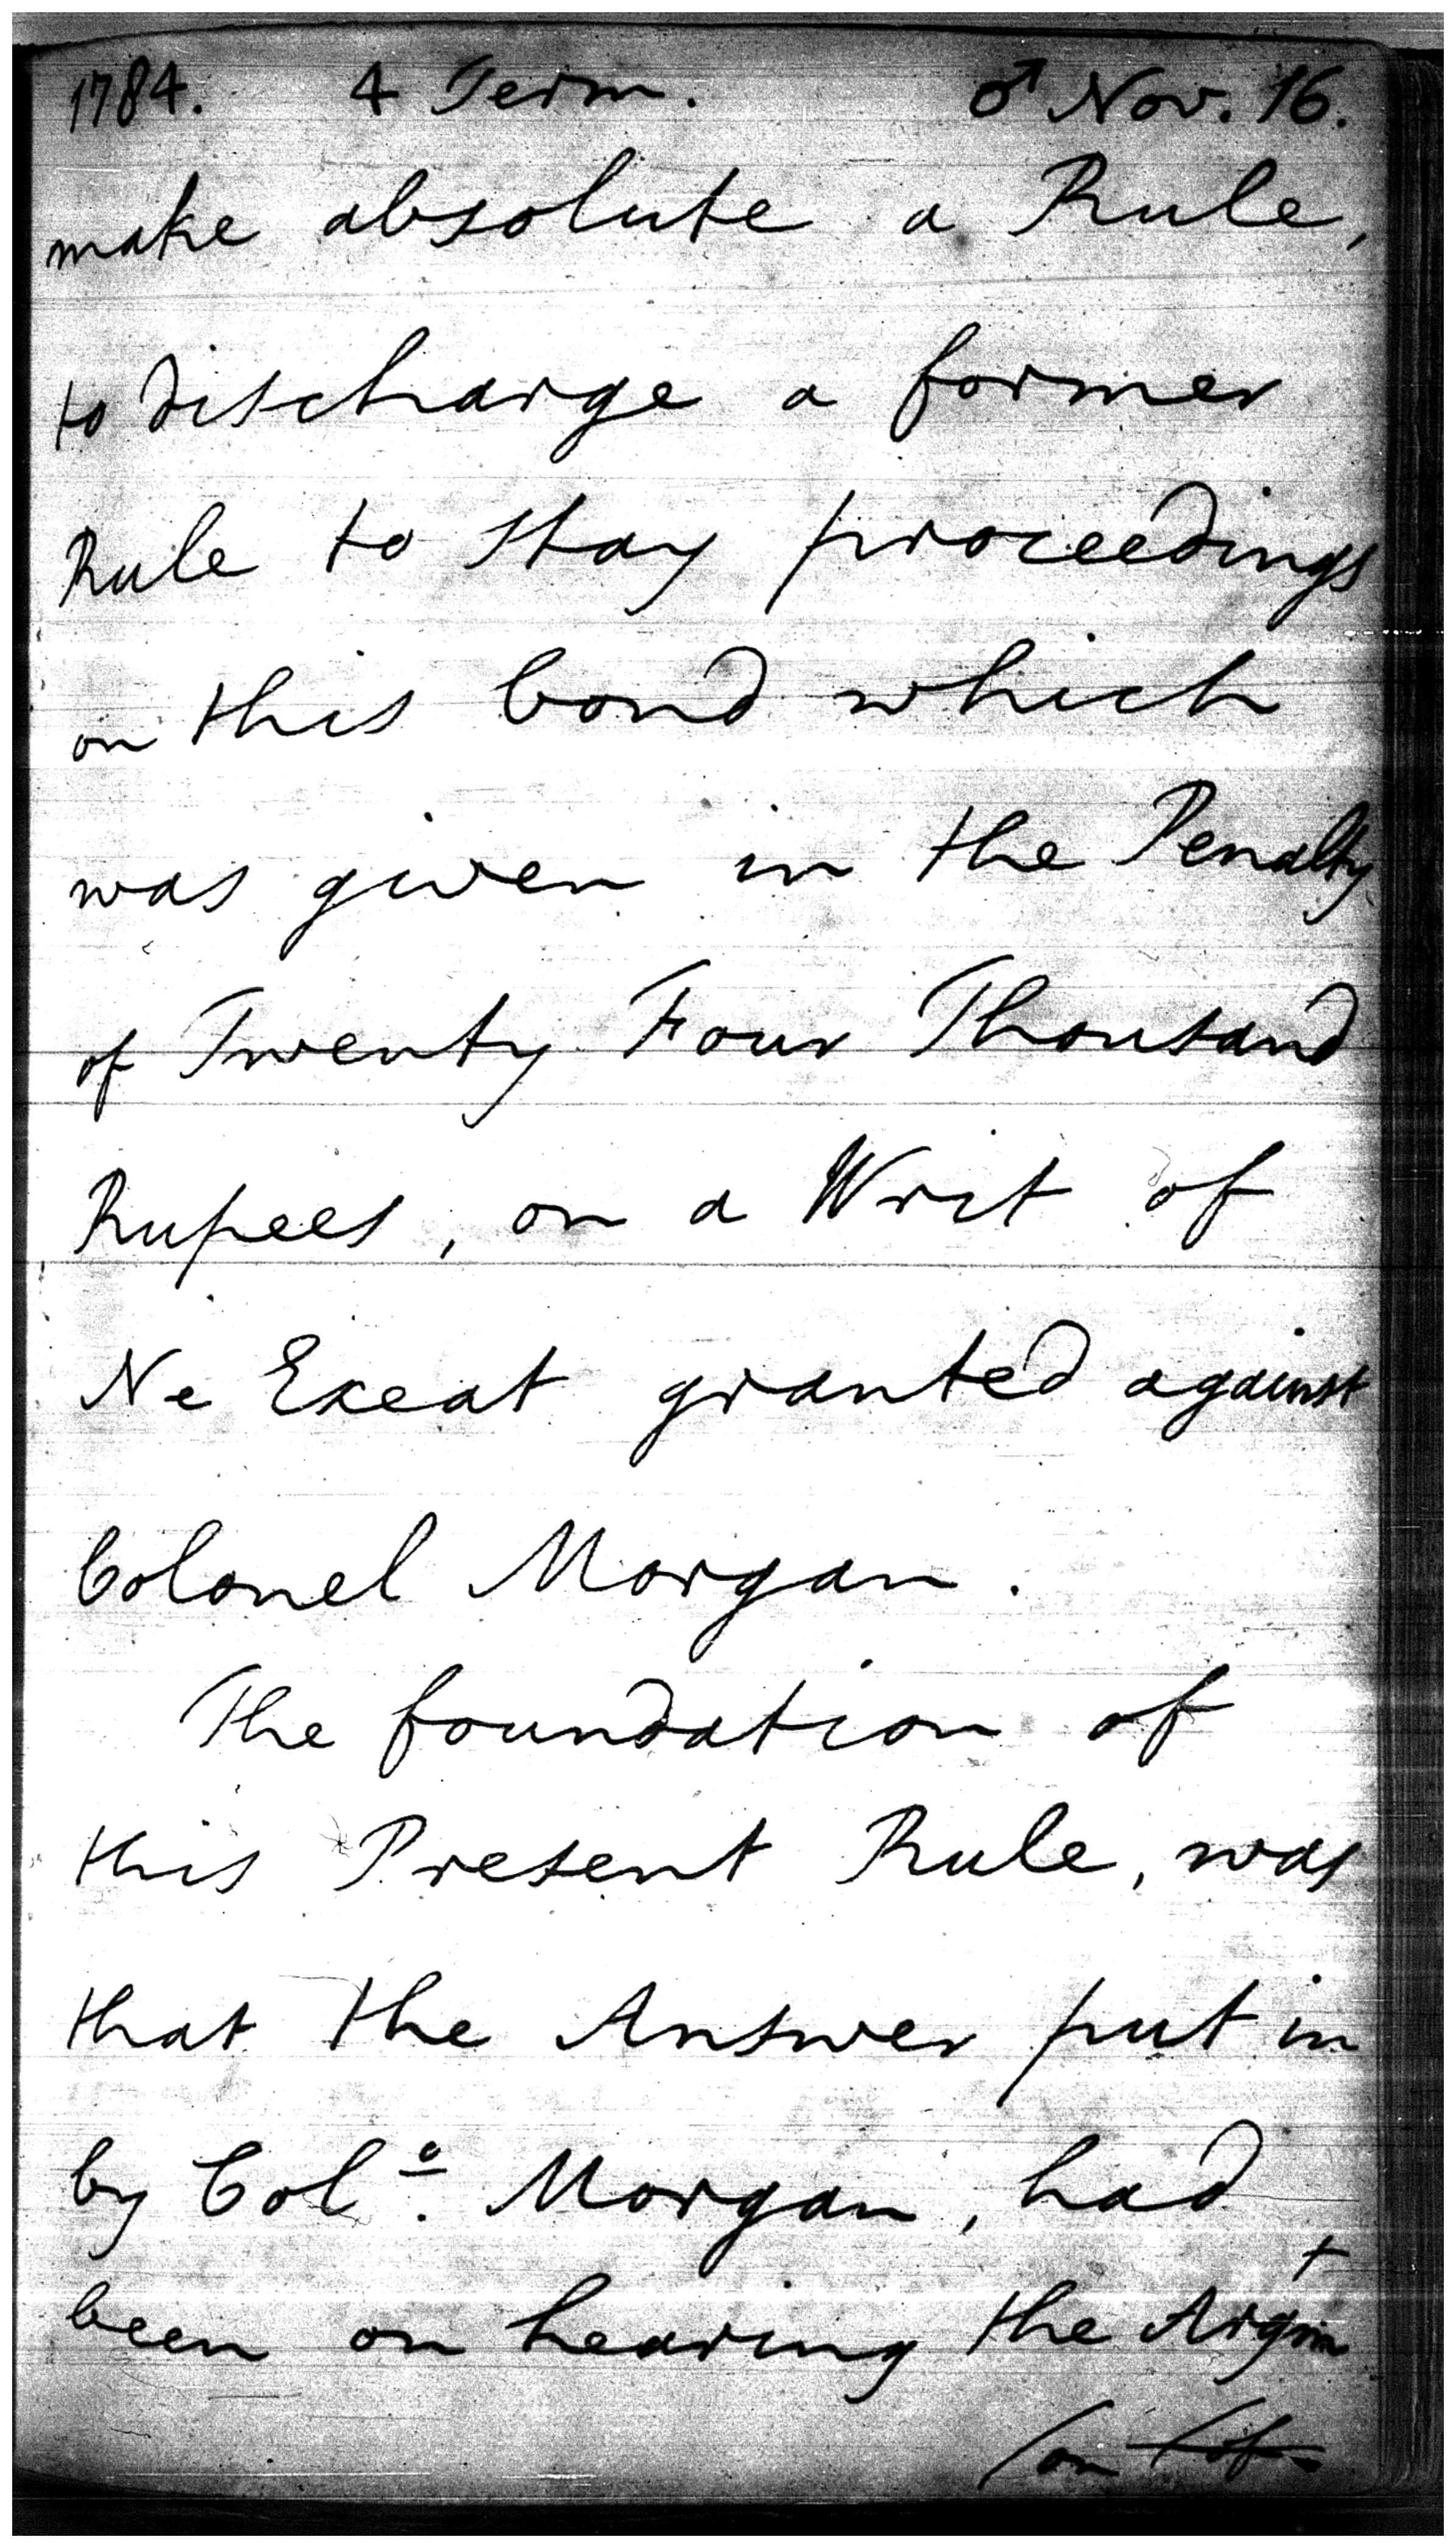 1784. 4 Term. ♂ Nov. 16.
make absolute a Rule,
to discharge a former
Rule to stay proceedings
on this bond which
was given in the Penalty
of Twenty Four Thousand
Rupees, on a Writ of
Ne Exeat granted against
Colonel Morgan.
The foundation of
this Present Rule, was
that the Answer put in
by Colº. Morgan, had
been on hearing the Argmt
(on